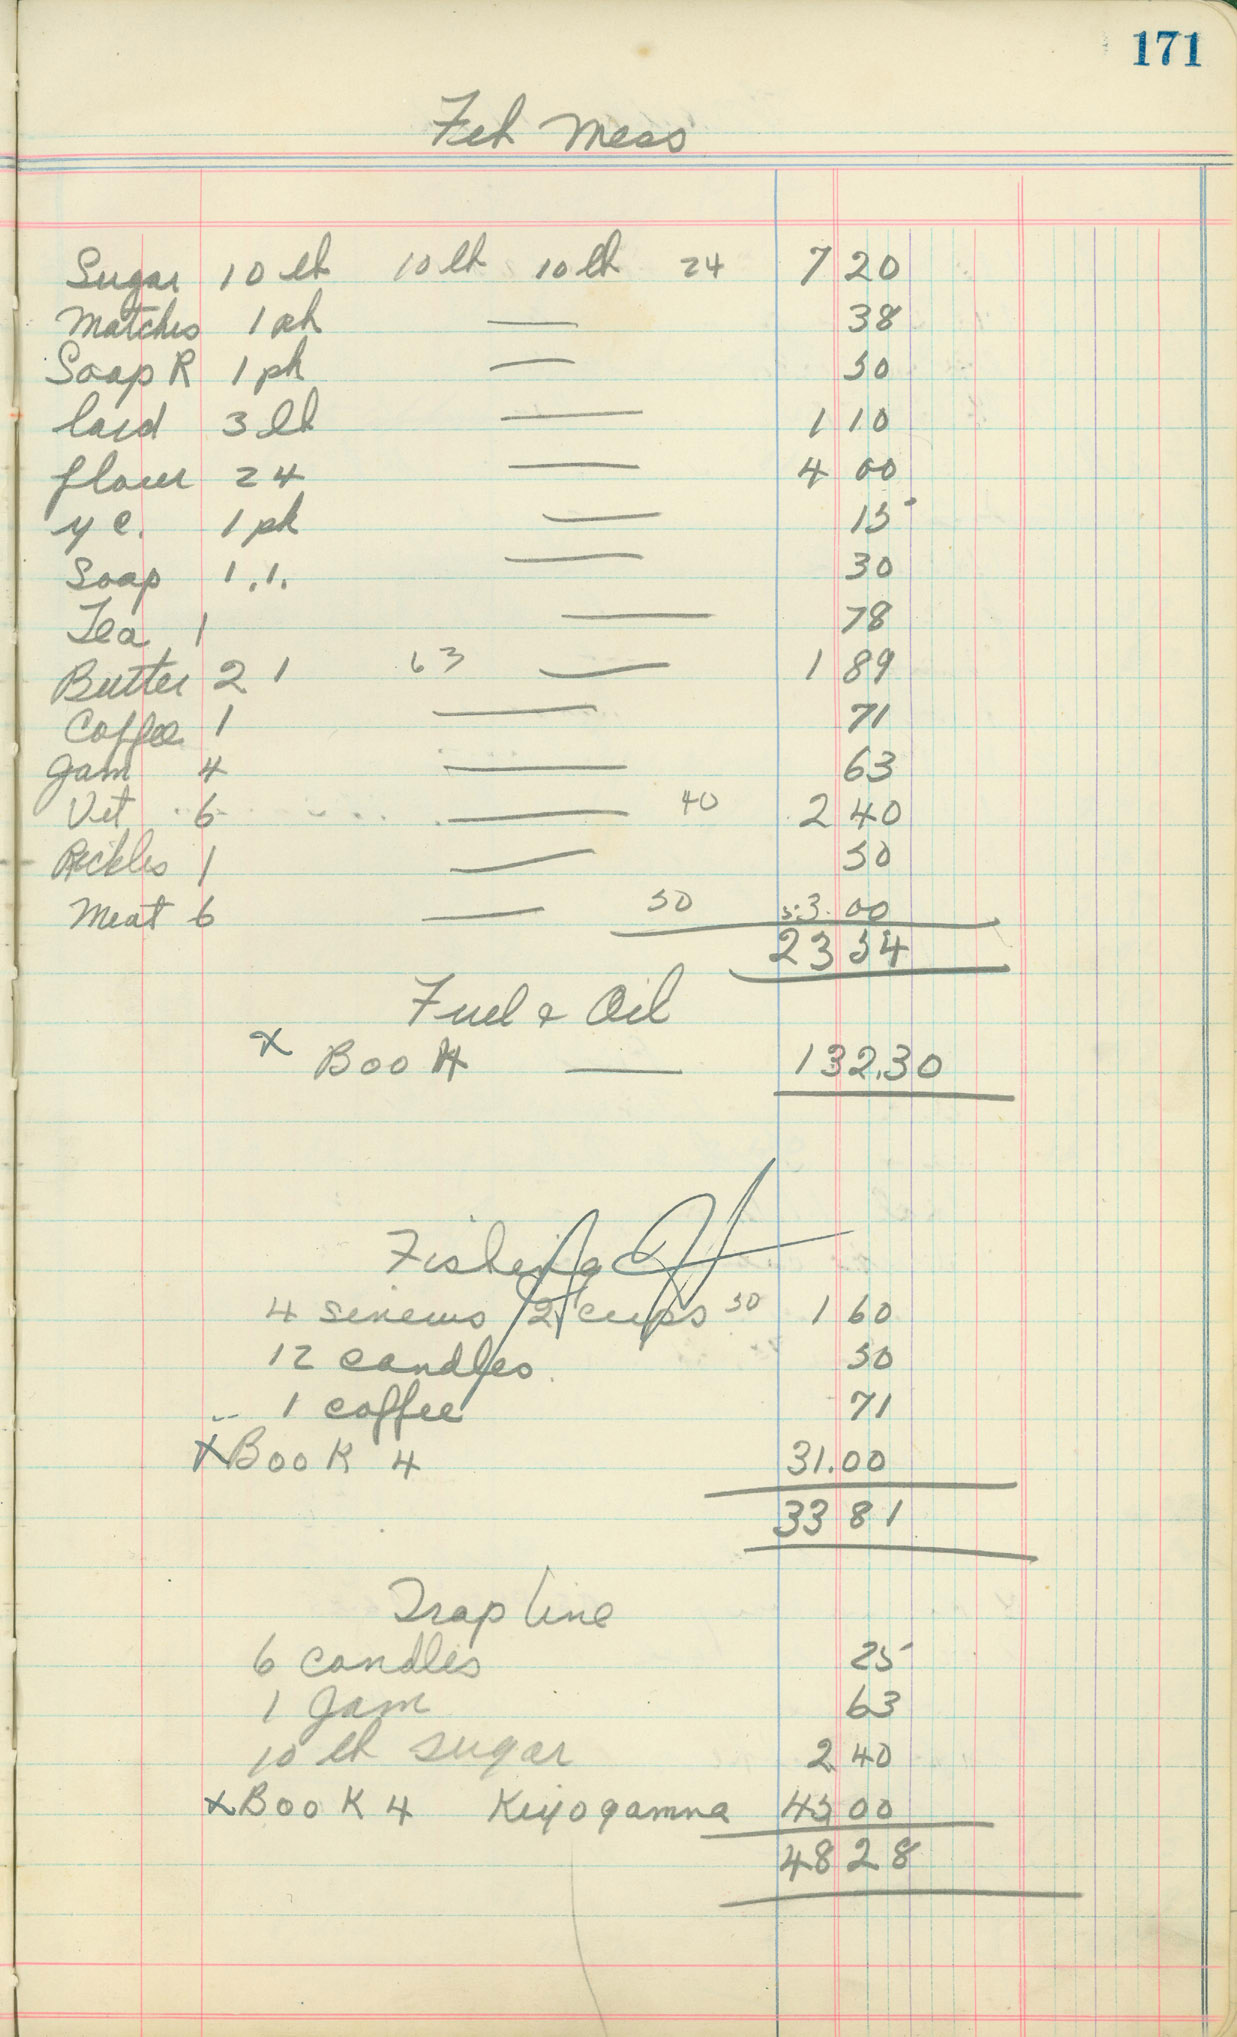 171
Feb Mess
Sugar 10 lb 10 lb 10 lb 24 7 20
Matches 1 pk — 38
Soap R 1 pk — 50
lard 3 lb — 1 10
flour 24 — 4 00
y c. 1 pk — 15
Soap 1.1. — 30
Tea 1 — 78
Butter 2 1 63 — 1 89
Coffee 1 — 71
Jam 4 — 63
Vet 6 — 40 2 40
Pickles 1 — 50
Meat 6 — 50 3.00
23 54
Fuel & Oil
x Book 4 — 132.30
Fishing
4 2 cups 30 1 60
12 candles 50
1 coffee 71
x Book 4 31.00
33 81
Trap line
6 candles 25
1 Jam 63
10 lb sugar 2 40
x Book 4 Kiyogamna 45 00
48 28